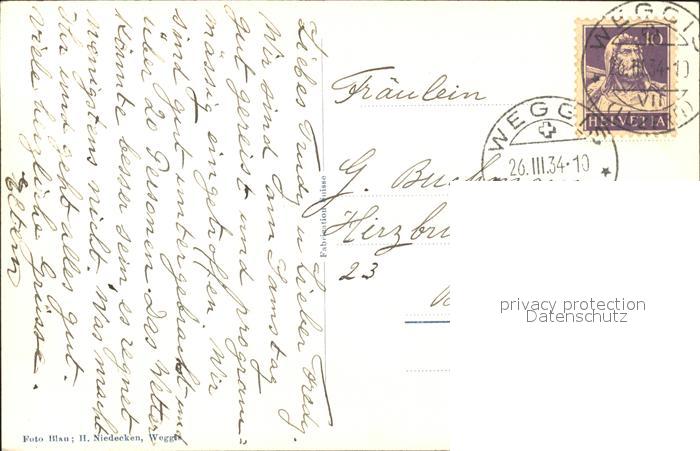 Liebes Trudy u. lieber Fredy.
Wir sind am Samstag
gut gereist und program=
mässig eingetroffen. Wir
sind gut untergebracht und
über 20 Personen. Das Wetter
könnte besser sein, es regnet
wenigstens nicht. Was macht
Ihr und geht alles gut.
Viele herzliche Grüsse.
Eltern
Fabrication Suisse
Foto Blau; H. Niedecken, Weggis
Fräulein
G.
23
WEGGIS
26.III.34-10
VII
10
HELVETIA
WEGGIS
26.III.34-10
privacy protection
Datenschutz